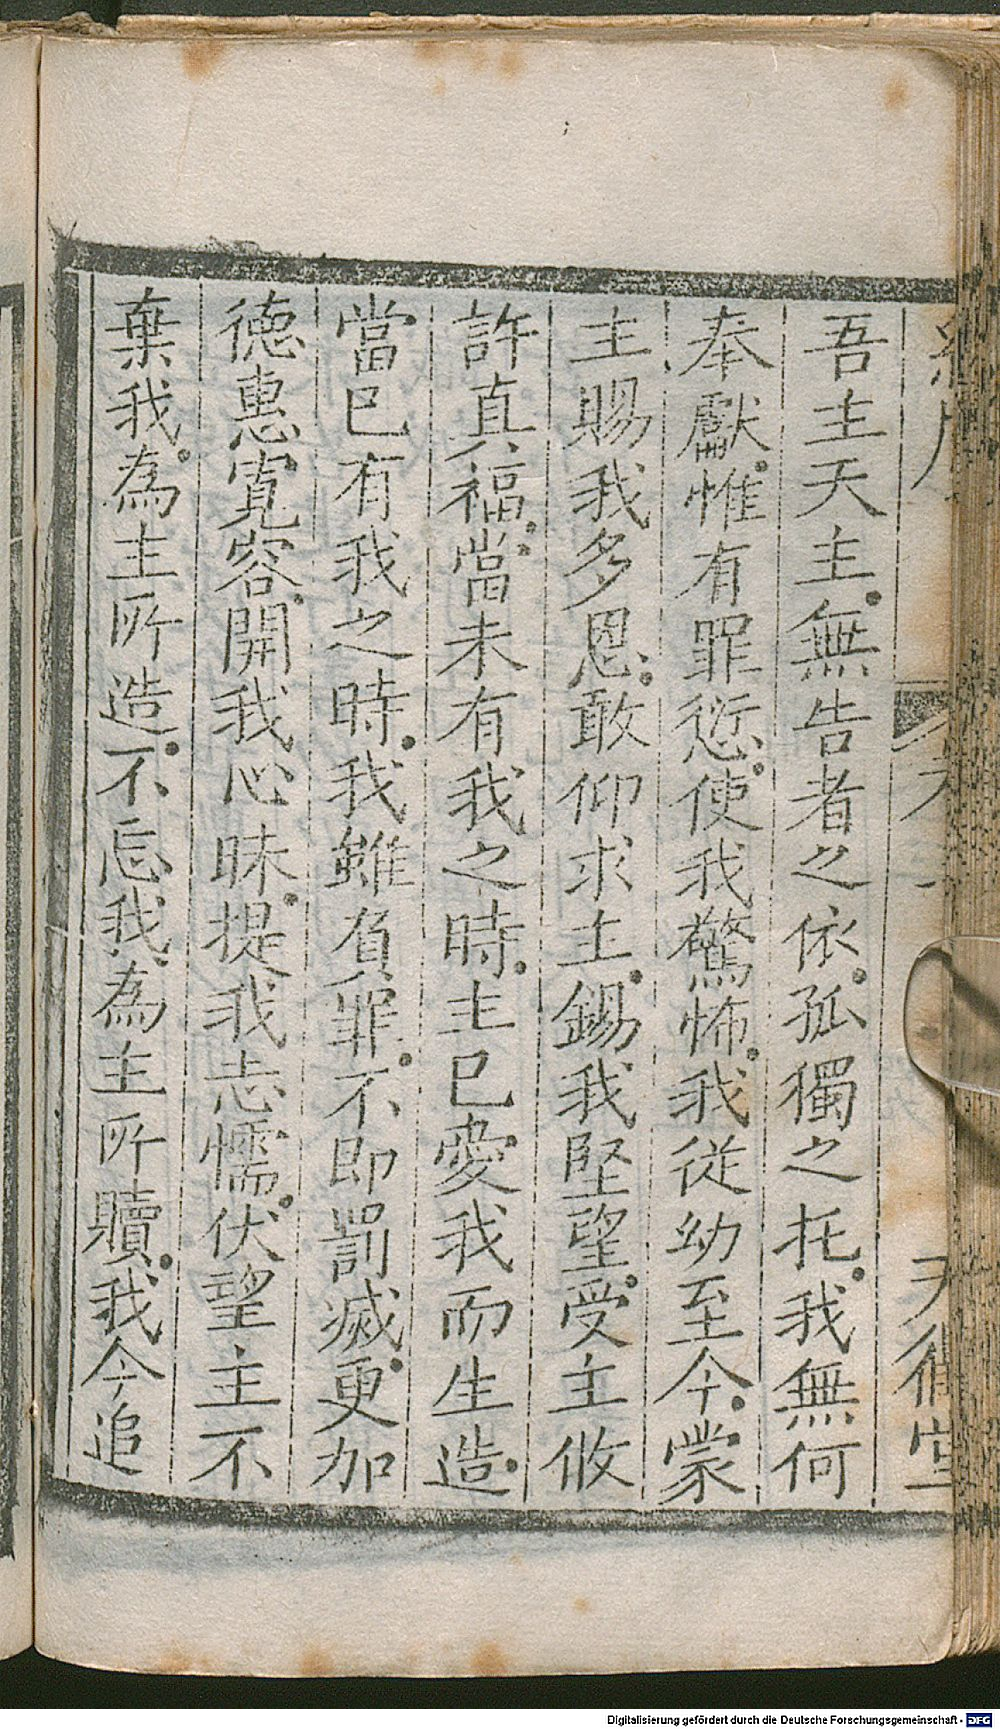 吾主天主。無告者之依。孤獨之托。我無何
奉獻。惟有罪愆。使我驚怖。我從幼至今。蒙
主賜我多恩。敢仰求主。錫我堅望。受主攸
許真福。當未有我之時。主已愛我而生造。
當已有我之時。我雖負罪。不即罰滅。更加
德惠寬容。開我心昧。提我志懦。伏望主不
棄我。為主所造。不忘我。為主所贖。我今追
Digitalisierung gefördert durch die Deutsche Forschungsgemeinschaft - DFG